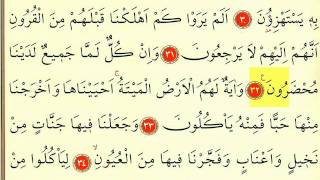 بِهِ يَسْتَهْزِؤُنَ ٣٠ اَلَمْ يَرَوْا كَمْ اَهْلَكْنَا قَبْلَهُمْ مِنَ الْقُرُونِ
اَنَّهُمْ اِلَيْهِمْ لَا يَرْجِعُونَ ٣١ وَاِنْ كُلٌّ لَمَّا جَمِيعٌ لَدَيْنَا
مُحْضَرُونَ ٣٢ وَاٰيَةٌ لَهُمُ الْاَرْضُ الْمَيْتَةُ اَحْيَيْنَاهَا وَاَخْرَجْنَا
مِنْهَا حَبًّا فَمِنْهُ يَأْكُلُونَ ٣٣ وَجَعَلْنَا فِيهَا جَنَّاتٍ مِنْ
نَخِيلٍ وَاَعْنَابٍ وَفَجَّرْنَا فِيهَا مِنَ الْعُيُونِ ٣٤ لِيَأْكُلُوا مِنْ